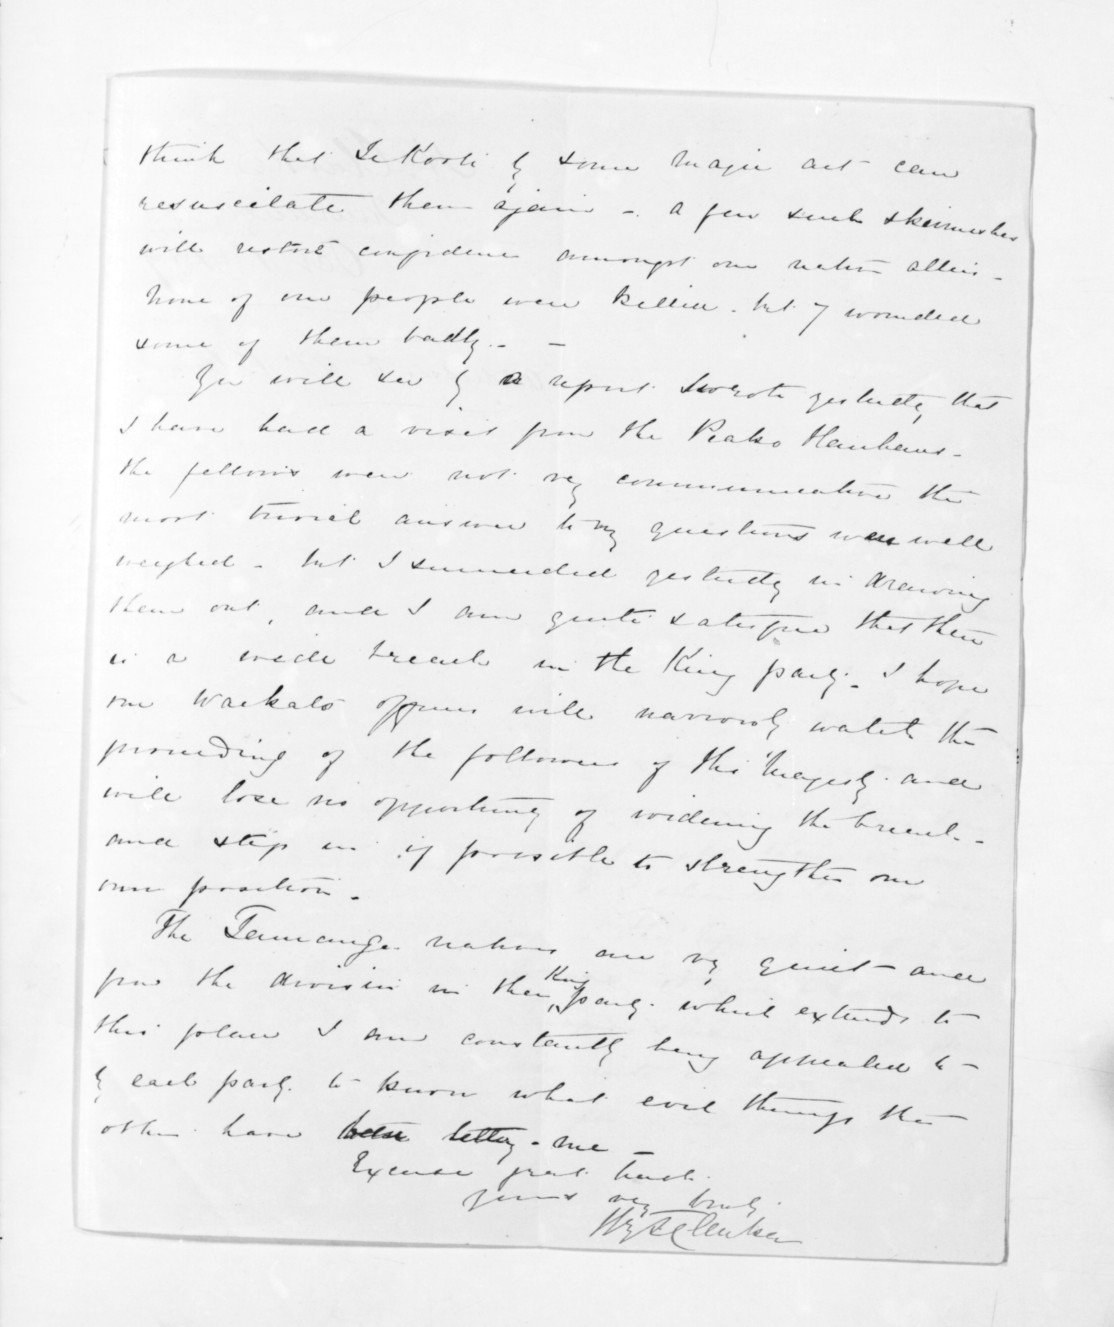 think that Te Kooti by some magic art can
resuscitate them again - a few such skirmishes
will restore confidence amongst our native allies -
None of our people were killed. but 7 wounded
some of them badly. - -
You will see by a report I wrote yesterday, that
I have had a visit from the Piako Hauhaus -
the fellows were not very communicative the
most trivial answer to my questions were well
weighed - but I succeeded yesterday in drawing
them out, and I am quite satisfied that there
is a wide breach in the King party - I hope
our Waikato officers will narrowly watch the
proceeding of the followers of this Majesty. and
will lose no opportunity of widening the breach -
and step in if possible to strengthen our
own position -
The Tauranga natives are very quiet - and
from the division in their King party. which extends to
this place I am constantly being appealed to -
by each party. to know what evil things the
other have been telling me -
Excuse great haste.
yours very truly.
Hy T Clarke